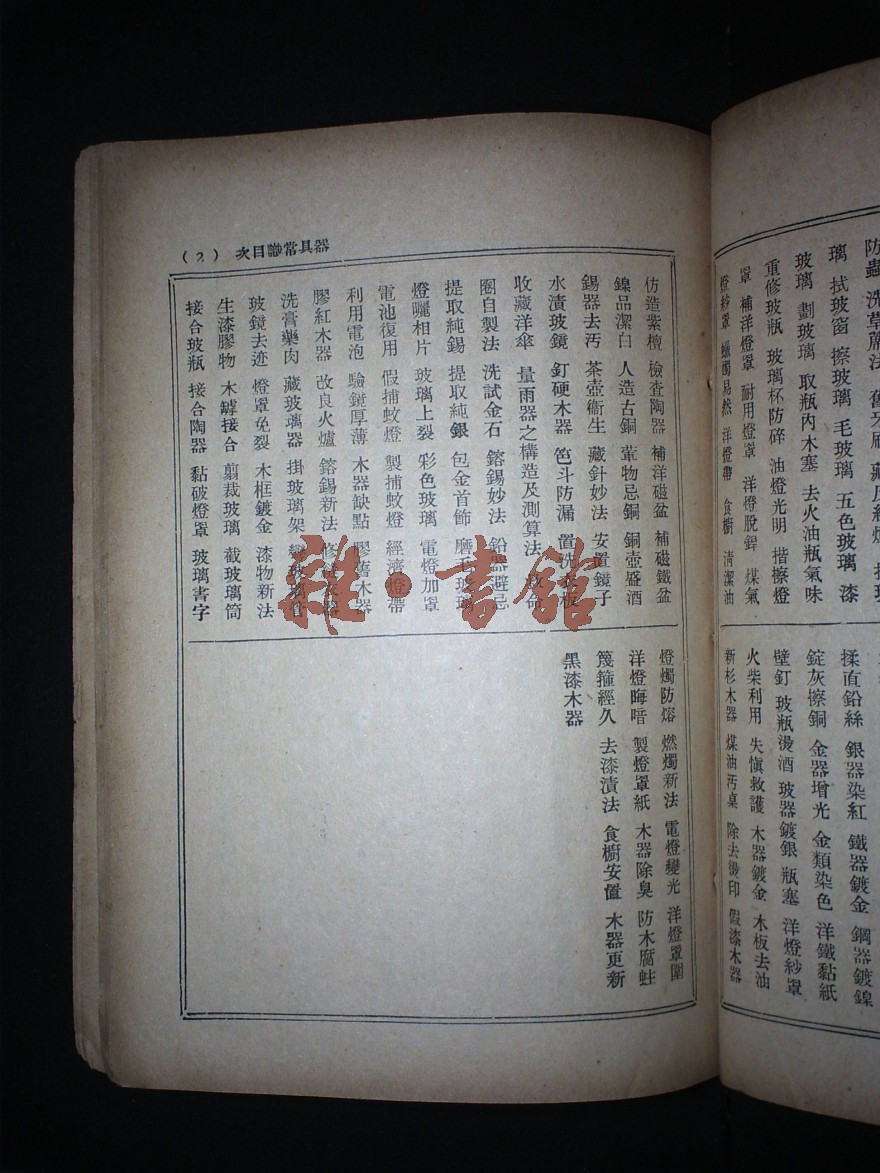 防蟲 洗草蓆法
璃 拭玻窗 擦玻璃 毛玻璃 五色玻璃 漆
玻璃 劃玻璃 取瓶內木塞 去火油瓶氣味
重修玻瓶 玻璃杯防碎 油燈光明 揩擦燈
罩 補洋燈罩 耐用燈罩 洋燈脫銲 煤氣
燈紗罩 蠟燭易然 洋燈帶 食櫥 清潔油
揉直鉛絲 銀器染紅 鐵器鍍金 鋼器鍍鎳
錠灰擦銅 金器增光 金類染色 洋鐵黏紙
壁釘 玻瓶燙酒 玻器鍍銀 瓶塞 洋燈紗罩
火柴利用 失愼救護 木器鍍金 木板去油
新杉木器 煤油汚桌 除去燙印 假漆木器
器具常識目次 (2)
仿造紫檀 檢查陶器 補洋磁盆 補磁鐵盆
鎳品潔白 人造古銅 葷物忌銅 銅壺盛酒
錫器去污 茶壺衞生 藏針妙法 安置鏡子
水漬玻鏡 釘硬木器 笆斗防漏 置洗衣板
收藏洋傘 量雨器之構造及測算法 救命
圈自製法 洗試金石 鎔錫妙法 鉛器避忌
提取純錫 提取純銀 包金首飾 磨毛玻璃
燈曬相片 玻璃上裂 彩色玻璃 電燈加罩
電池復用 假捕蚊燈 製捕蚊燈 經濟燈帶
利用電泡 驗鏡厚薄 木器缺點 膠舊木器
膠紅木器 改良火爐 鎔錫新法
洗膏藥肉 藏玻璃器 掛玻璃架 彎玻璃管
玻鏡去迹 燈罩免裂 木框鍍金 漆物新法
生漆膠物 木罅接合 翦裁玻璃 截玻璃筒
接合玻瓶 接合陶器 黏破燈罩 玻璃書字
燈燭防熔 燃燭新法 電燈變光 洋燈罩圍
洋燈晦暗 製燈罩紙 木器除臭 防木腐蛀
篾箍經久 去漆漬法 食櫥安置 木器更新
黑漆木器
雜·書館